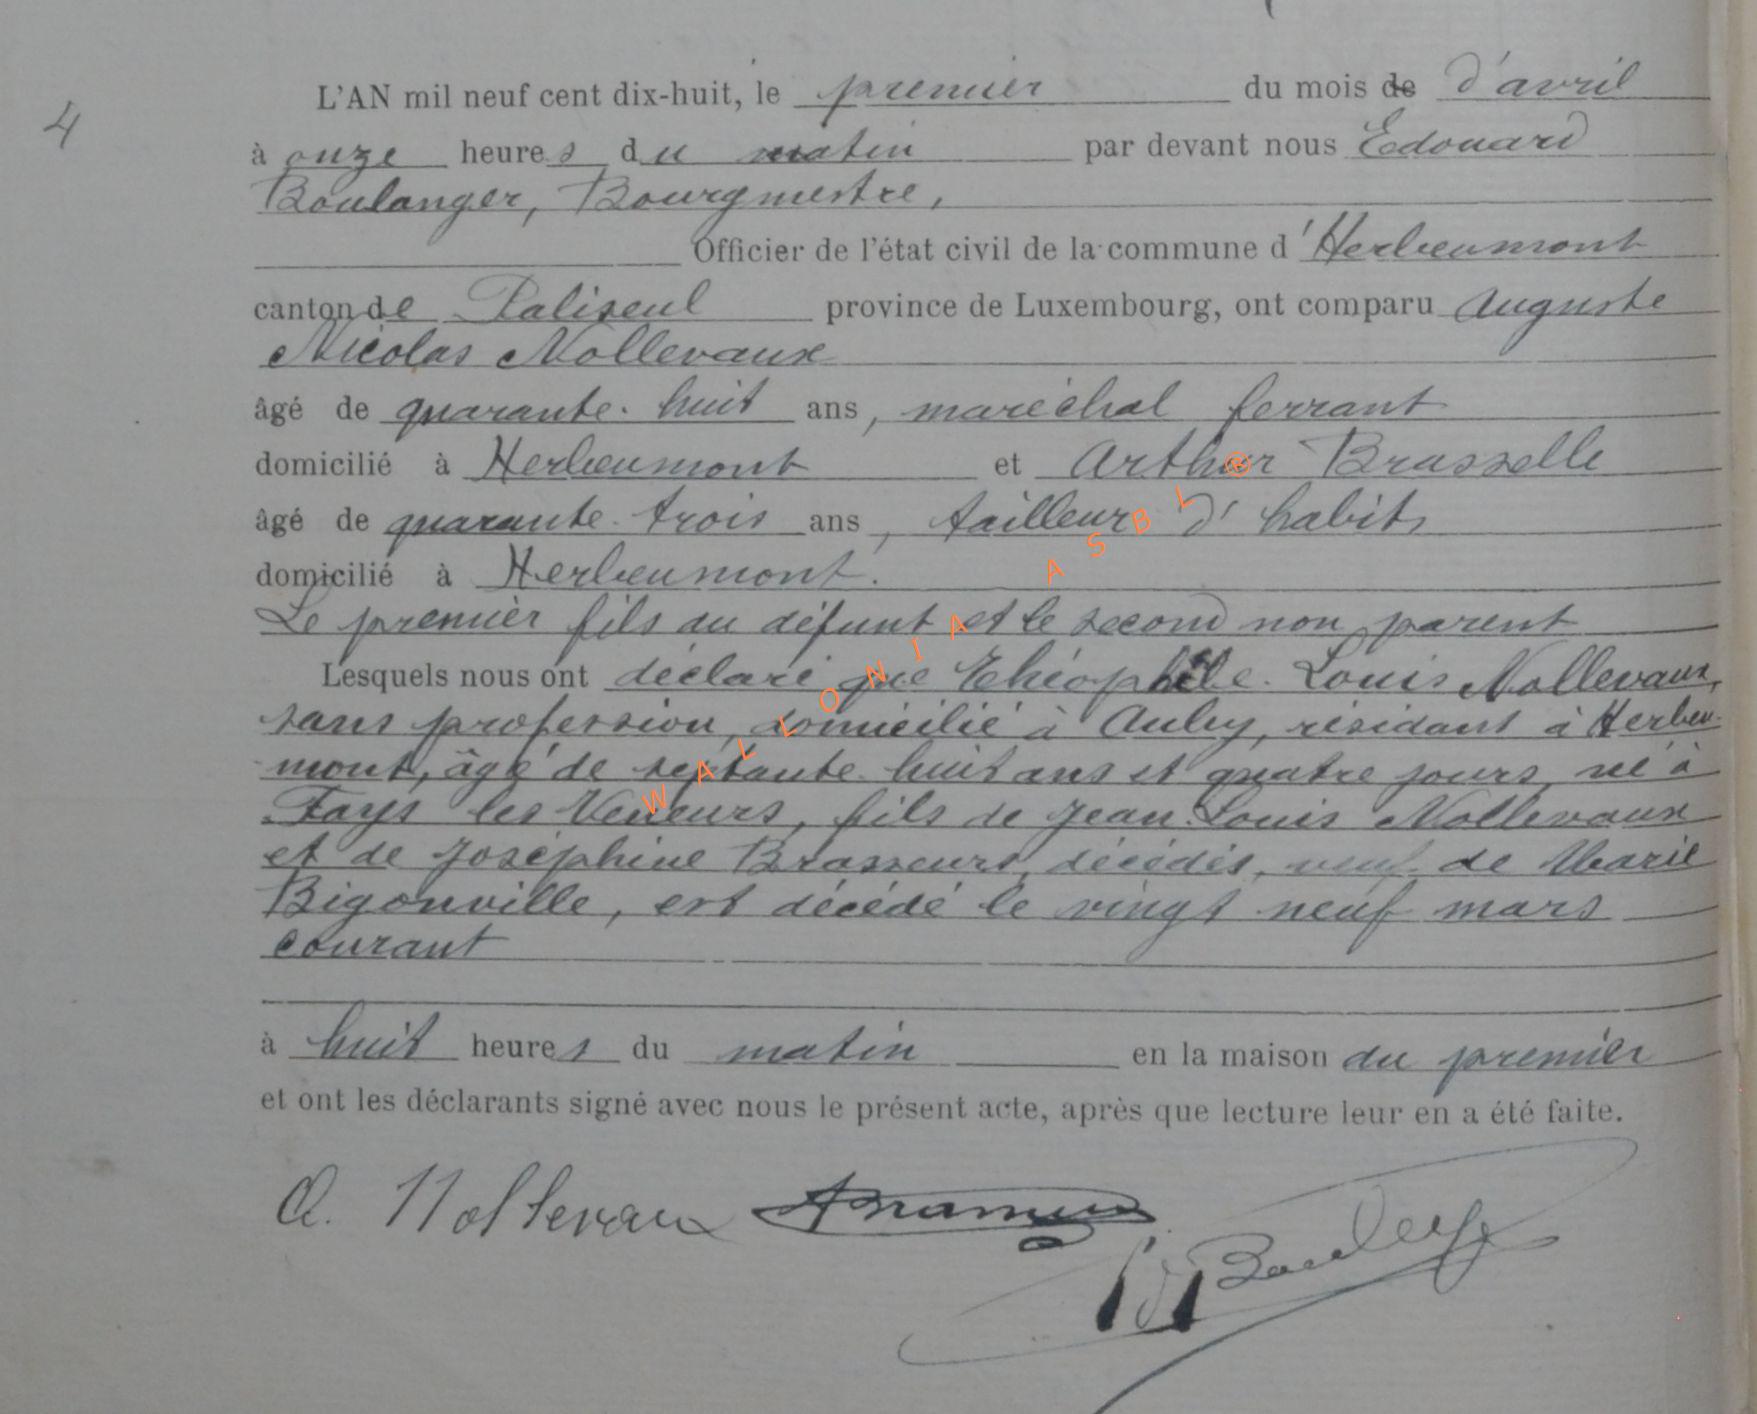 4
L'AN mil neuf cent dix-huit, le premier du mois de d'avril
à onze heures du matin par devant nous Edouard
Boulanger, Bourgmestre,
Officier de l'état civil de la commune d'Herbeumont
canton de Paliseul province de Luxembourg, ont comparu Auguste
Nicolas Nollevaux
âgé de quarante-huit ans, maréchal ferrant
domicilié à Herbeumont et Arthur Brasselle
âgé de quarante-trois ans, tailleur d'habits
domicilié à Herbeumont.
Le premier fils du défunt et le second non parent
Lesquels nous ont déclaré que Théophile-Louis Nollevaux,
sans profession, domicilié à Auby, résidant à Herbeu-
mont, âgé de septante-huit ans et quatre jours, né à
Fays les Veneurs, fils de Jean-Louis Nollevaux
et de Joséphine Brasseurs, décédés, veuf de Marie
Bigonville, est décédé le vingt neuf mars
courant
à huit heures du matin en la maison du premier
et ont les déclarants signé avec nous le présent acte, après que lecture leur en a été faite.
A. Nollevaux
WALLONIA ASBL ®